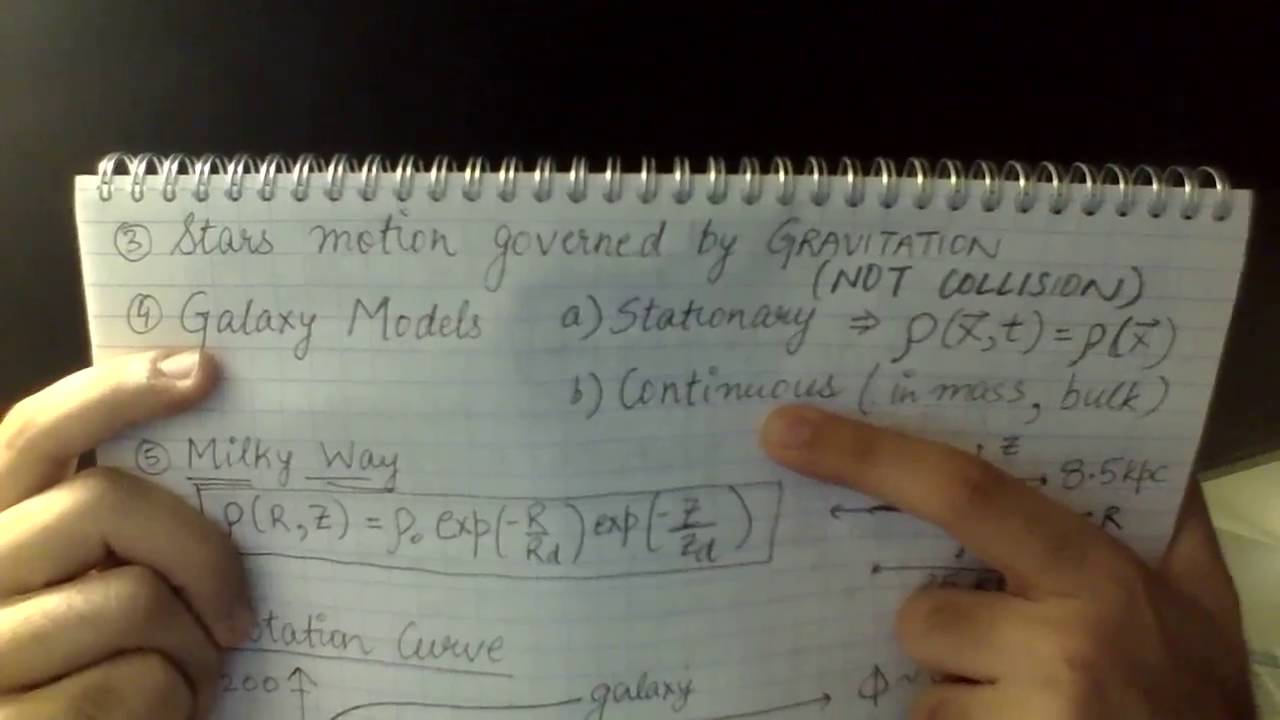 ③ Stars motion governed by GRAVITATION
(NOT COLLISION)
④ Galaxy Models a) Stationary ⇒ ρ(x⃗,t)=ρ(x⃗)
b) Continuous (in mass, bulk)
⑤ Milky Way
z
8.5kpc
ρ(R,Z) = ρ₀ exp(-R/Rd) exp(-Z/Zd)
R
Curve
200
galaxy
ϕ